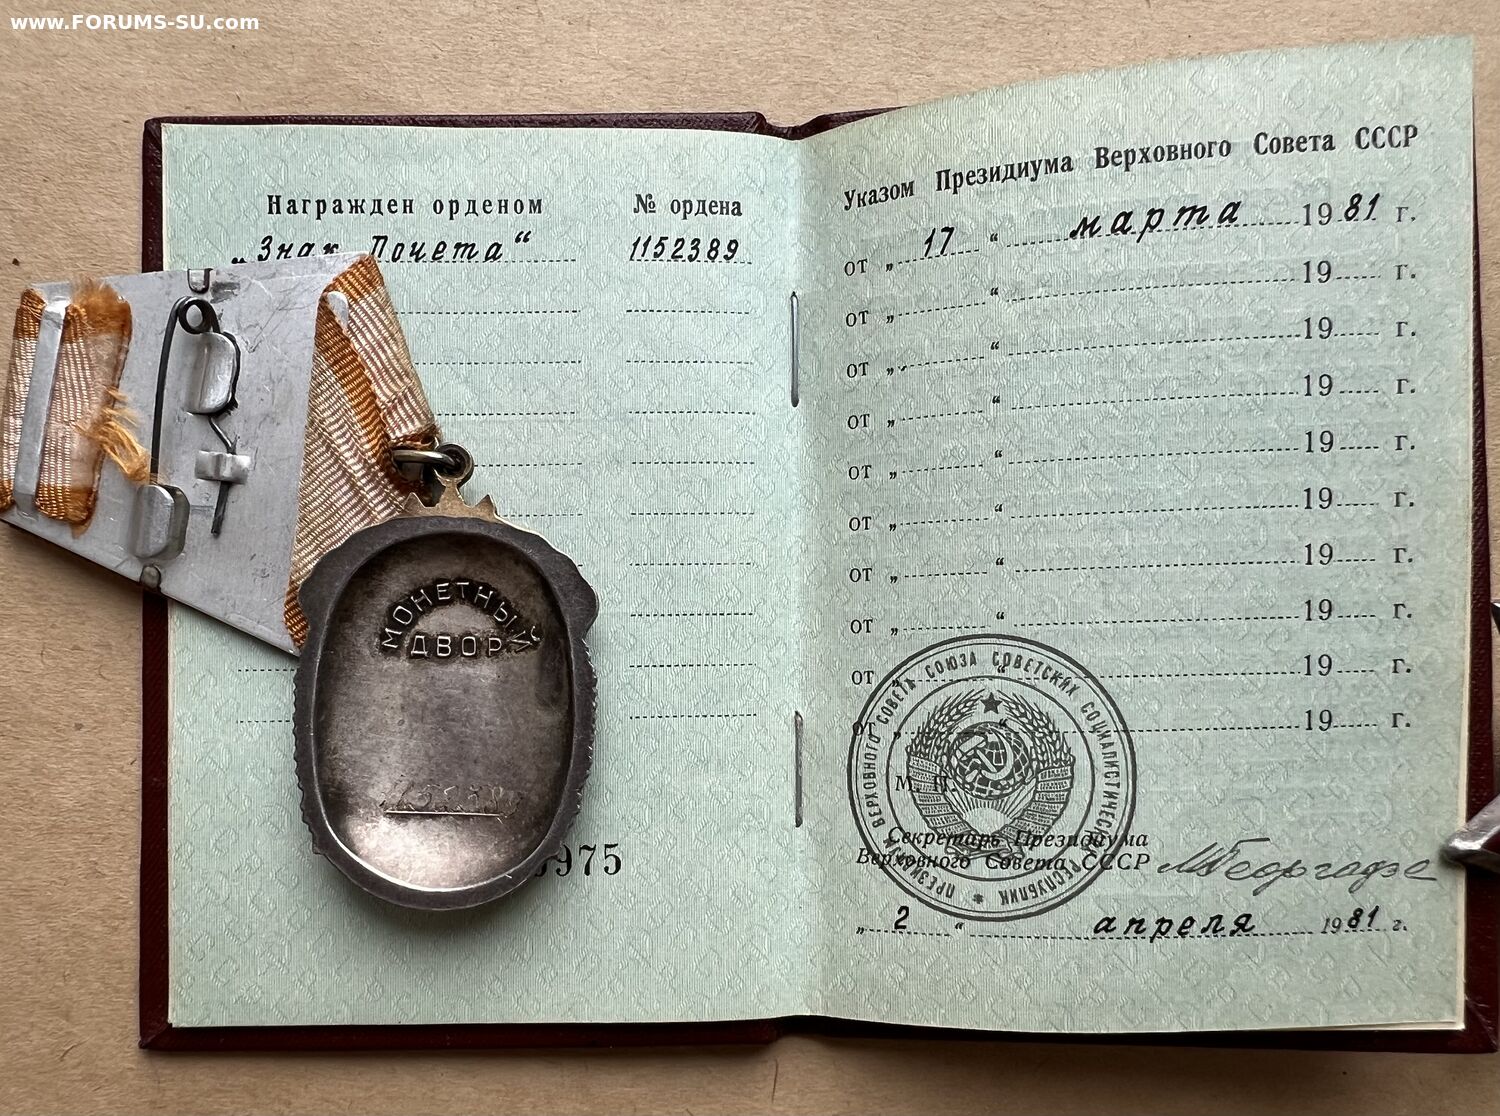 www.FORUMS-SU.com
Награжден орденом № ордена
„Знак Почета“ 1152389
МОНЕТНЫЙ
ДВОР
975
Указом Президиума Верховного Совета СССР
от „ 17 “ марта 1981 г.
от „ “ 19 г.
от „ “ 19 г.
от „ “ 19 г.
от „ “ 19 г.
от „ “ 19 г.
от „ “ 19 г.
от „ “ 19 г.
от „ “ 19 г.
от „ “ 19 г.
ПРЕЗИДИУМ ВЕРХОВНОГО СОВЕТА СОЮЗА СОВЕТСКИХ СОЦИАЛИСТИЧЕСКИХ РЕСПУБЛИК
М. П.
Секретарь Президиума
Верховного Совета СССР МГеоргадзе
„ 2 “ апреля 1981 г.